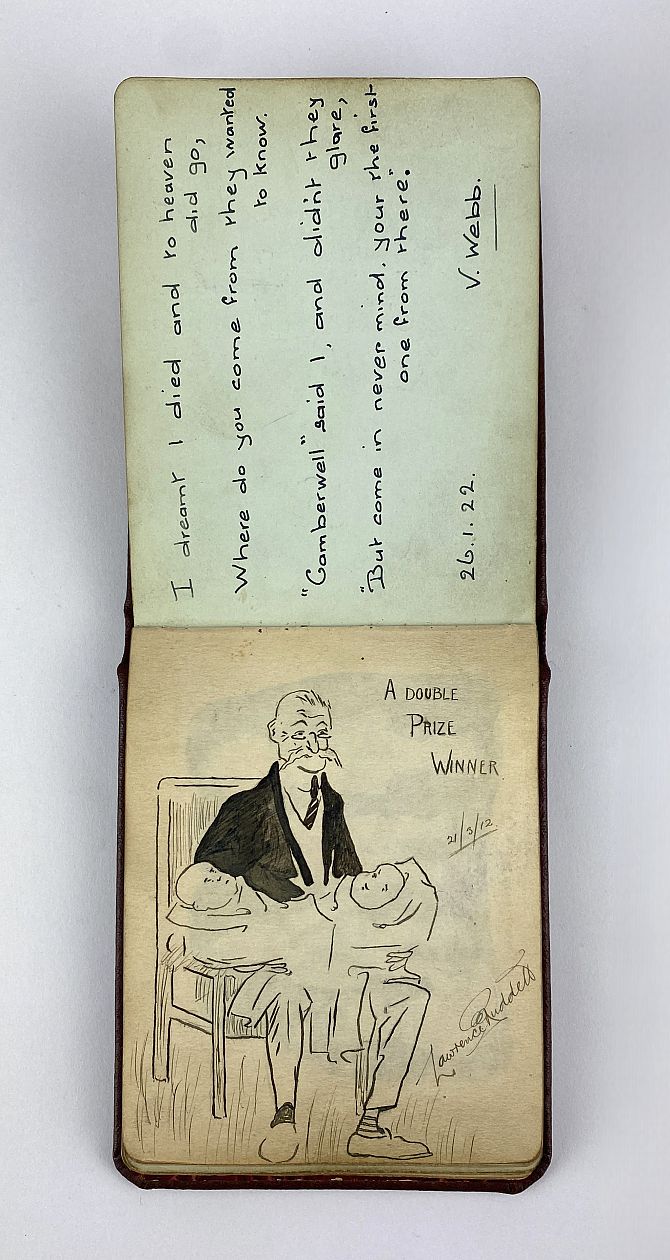 I dreamt I died and to heaven
did go,
Where do you come from they wanted
to know.
"Camberwell" said I, and didn't they
glare,
"But come in never mind, your the first
one from there."
V. Webb.
26.1.22.
A DOUBLE
PRIZE
WINNER
21/3/12
Lawrence